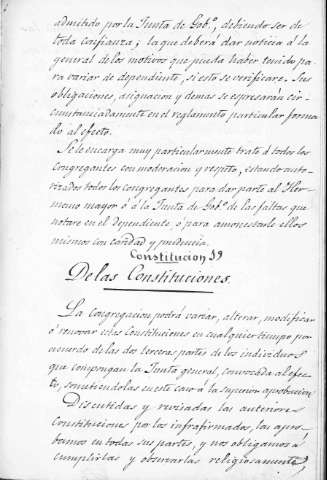 admitido por la Junta de Gob.º, debiendo ser de
toda confianza; la que deberá dar noticia á la
general de los motivos que pueda haber tenido pa
ra variar de dependiente, si esto se verificare. Sus
obligaciones, asignacion y demas se espresarán cir-
cunstanciadamente en el reglamento particular forma
do al efecto.
Se le encarga muy particularmente trate á todos los
congregantes con moderacion y respeto, estando auto-
rizados todos los congregantes para dar parte al Her-
mano mayor ó á la Junta de Gob.º de las faltas que
notare en el dependiente, ó para amonestarle ellos
mismos con caridad y prudencia.
Constitucion 19
De las Constituciones.
La Congregacion podrá variar, alterar, modificar
ó renovar estas Constituciones en cualquier tiempo por
acuerdo de las dos terceras partes de los individuos
que compongan la Junta general, convocada al efec-
to, sometiendolas en este caso á la superior aprobacion
Discutidas y revisadas las anteriores
Constituciones por los infrafirmados, las apro-
bamos en todas sus partes, y nos obligamos á
cumplirlas y observarlas religiosamente,